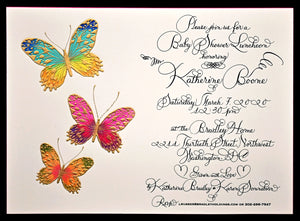 Please join us for a
Baby Shower Luncheon
honoring
Katherine Boone
Saturday March 7 2020
12:30 pm
at the Bradley Home
Thirtieth Street Northwest
Washington DC
Given with Love
by Katherine Bradley & Karen Donnelson
Rsvp